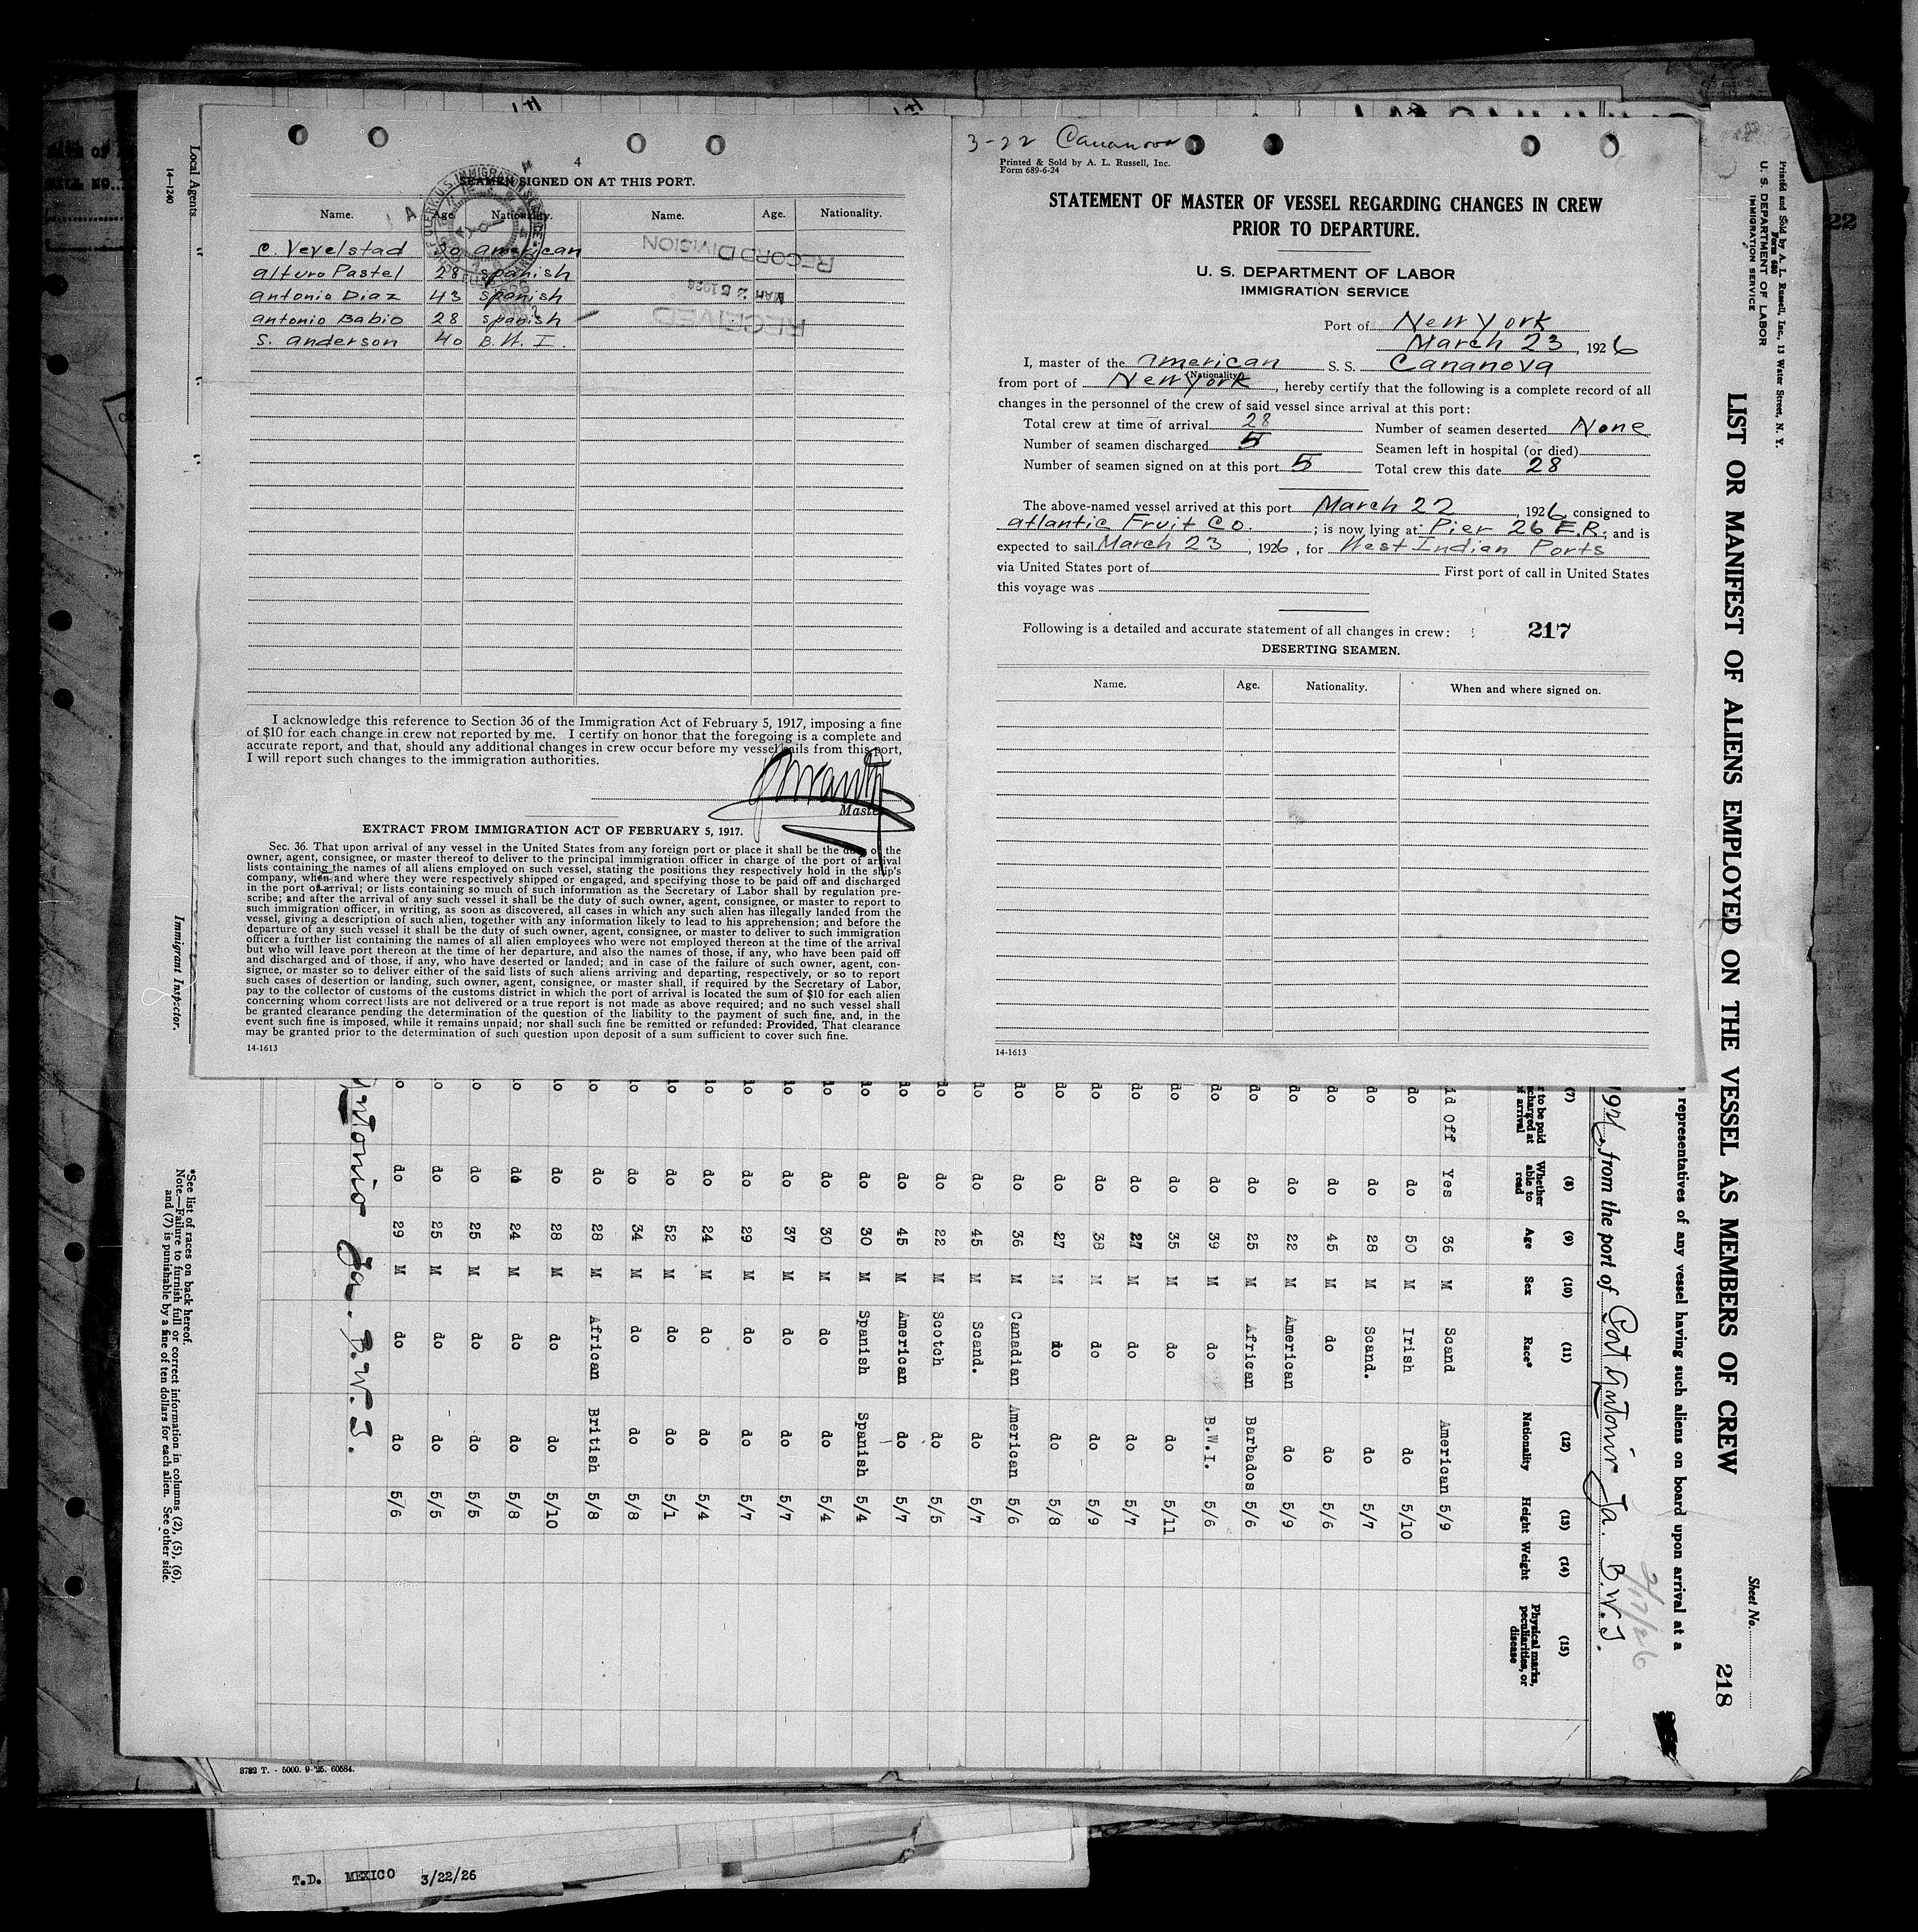 4
SEAMEN SIGNED ON AT THIS PORT.
Name. Age. Nationality. Name. Age. Nationality.
C. Vevelstad 30 american
alturo Pastel 28 spanish
antonio Diaz 43 spanish
antonio Babio 28 spanish
S. anderson 40 B. W. I.
RECORD DIVISION
MAR 25 1926
RECEIVED
I acknowledge this reference to Section 36 of the Immigration Act of February 5, 1917, imposing a fine
of $10 for each change in crew not reported by me. I certify on honor that the foregoing is a complete and
accurate report, and that, should any additional changes in crew occur before my vessel sails from this port,
I will report such changes to the immigration authorities.
Master
EXTRACT FROM IMMIGRATION ACT OF FEBRUARY 5, 1917.
Sec. 36. That upon arrival of any vessel in the United States from any foreign port or place it shall be the duty of the
owner, agent, consignee, or master thereof to deliver to the principal immigration officer in charge of the port of arrival
lists containing the names of all aliens employed on such vessel, stating the positions they respectively hold in the ship's
company, when and where they were respectively shipped or engaged, and specifying those to be paid off and discharged
in the port of arrival; or lists containing so much of such information as the Secretary of Labor shall by regulation pre-
scribe; and after the arrival of any such vessel it shall be the duty of such owner, agent, consignee, or master to report to
such immigration officer, in writing, as soon as discovered, all cases in which any such alien has illegally landed from the
vessel, giving a description of such alien, together with any information likely to lead to his apprehension; and before the
departure of any such vessel it shall be the duty of such owner, agent, consignee, or master to deliver to such immigration
officer a further list containing the names of all alien employees who were not employed thereon at the time of the arrival
but who will leave port thereon at the time of her departure, and also the names of those, if any, who have been paid off
and discharged and of those, if any, who have deserted or landed; and in case of the failure of such owner, agent, con-
signee, or master so to deliver either of the said lists of such aliens arriving and departing, respectively, or so to report
such cases of desertion or landing, such owner, agent, consignee, or master shall, if required by the Secretary of Labor,
pay to the collector of customs of the customs district in which the port of arrival is located the sum of $10 for each alien
concerning whom correct lists are not delivered or a true report is not made as above required; and no such vessel shall
be granted clearance pending the determination of the question of the liability to the payment of such fine, and, in the
event such fine is imposed, while it remains unpaid; nor shall such fine be remitted or refunded: Provided, That clearance
may be granted prior to the determination of such question upon deposit of a sum sufficient to cover such fine.
14-1613
3-22 Cananova
Printed & Sold by A. L. Russell, Inc.
Form 689-6-24
STATEMENT OF MASTER OF VESSEL REGARDING CHANGES IN CREW
PRIOR TO DEPARTURE.
U. S. DEPARTMENT OF LABOR
IMMIGRATION SERVICE
Port of New York
March 23, 1926
I, master of the american S. S. Cananova
(Nationality)
from port of New York, hereby certify that the following is a complete record of all
changes in the personnel of the crew of said vessel since arrival at this port:
Total crew at time of arrival 28 Number of seamen deserted None
Number of seamen discharged 5 Seamen left in hospital (or died)
Number of seamen signed on at this port 5 Total crew this date 28
The above-named vessel arrived at this port March 22, 1926, consigned to
atlantic Fruit Co.; is now lying at Pier 26 E.R.; and is
expected to sail March 23, 1926, for West Indian Ports
via United States port of First port of call in United States
this voyage was
Following is a detailed and accurate statement of all changes in crew: 217
DESERTING SEAMEN.
Name. Age. Nationality. When and where signed on.
14-1613
Printed and Sold by A. L. Russell, Inc., 13 Water Street, N. Y.
Form 680
U. S. DEPARTMENT OF LABOR
IMMIGRATION SERVICE
Sheet No.
218
LIST OR MANIFEST OF ALIENS EMPLOYED ON THE VESSEL AS MEMBERS OF CREW
representatives of any vessel having such aliens on board upon arrival at a
1926, from the port of Port Antonio Ja. B.W.I.
2/17/26
(7) (8) (9) (10) (11) (12) (13) (14) (15)
to be paid
charged at
of arrival
Whether able to read Age Sex Race* Nationality Height Weight Physical marks, peculiarities, or disease
id Off Yes 36 M Scand American 5/9
do do 50 M Irish do 5/10
do do 28 M Scand. do 5/7
do do 45 M do do 5/6
do do 22 M American do 5/9
do do 25 M African Barbados 5/6
do do 39 M do B.W.I. 5/6
do do 35 M do do 5/11
do do 27 M do do 5/7
do do 38 M do do 5/9
do do 27 M do do 5/8
do do 36 M Canadian American 5/6
do do 45 M Scand. do 5/7
do do 22 M Scotch do 5/5
do do 45 M American do 5/7
do do 30 M Spanish Spanish 5/4
do do 30 M do do 5/4
do do 37 M do do 5/7
do do 29 M do do 5/7
do do 24 M do do 5/4
do do 52 M do do 5/1
do do 34 M do do 5/8
do do 28 M African British 5/8
do do 28 M do do 5/10
do do 24 M do do 5/8
do do 25 M do do 5/5
do do 25 M do do 5/5
do do 29 M do do 5/6
Antonio Ja. B.W.I.
Local Agents
14-1240
Immigrant Inspector.
*See list of races on back hereof.
Note.—Failure to furnish full or correct information in columns (2), (5), (6),
and (7) is punishable by a fine of ten dollars for each alien. See other side.
2782 T. - 5000. 9-'25. 60584.
T.D. MEXICO 3/22/26